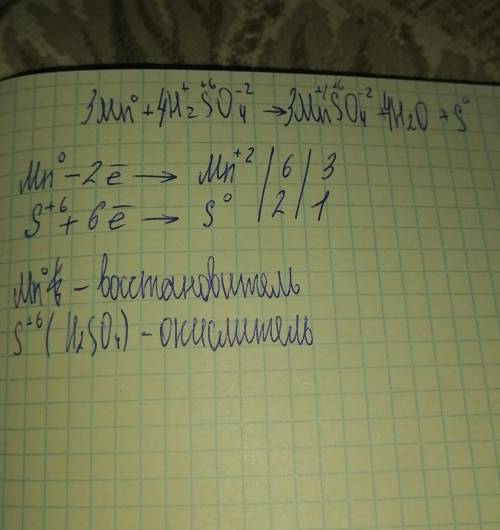 3Mn⁰ + 4H₂⁺S⁺⁶O₄⁻² → 3Mn⁺²S⁺⁶O₄⁻² + 4H₂O + S⁰
Mn⁰ - 2e̅ → Mn⁺² / 6 / 3
S⁺⁶ + 6e̅ → S⁰ / 2 / 1
Mn⁰ - восстановитель
S⁺⁶ (H₂SO₄) - окислитель